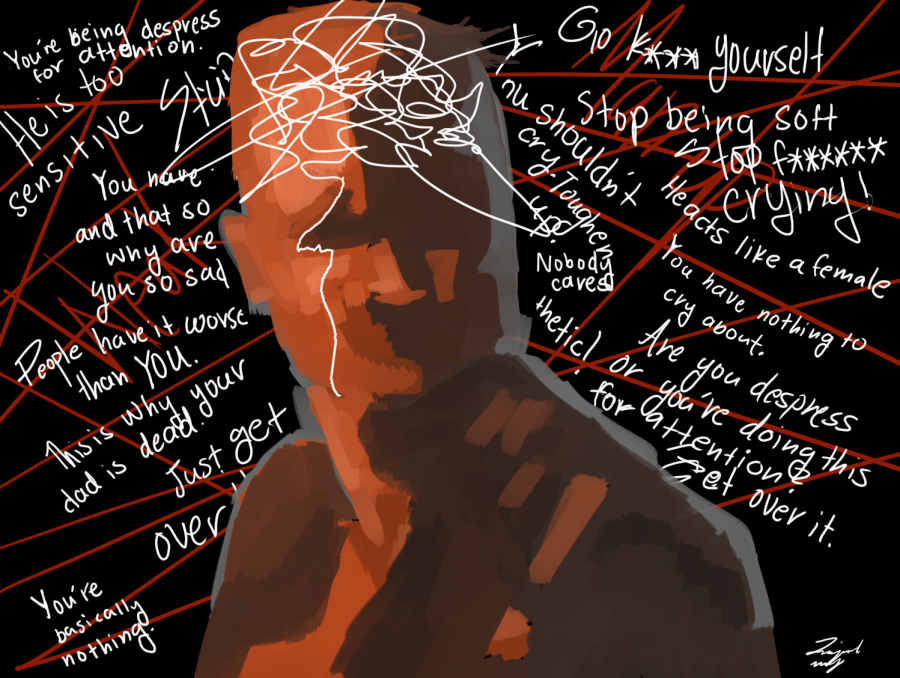 You're being despress
for attention.
He is too
sensitive
You have
and that so
why are
you so sad
People have it worse
than YOU.
This is why your
dad is dead.
Just get
over
You're
basically
nothing.
Go k**** yourself
Stop being soft
Stop f******
crying!
shouldn't
cry. Toughen
up.
Nobody
cares
He acts like a female
You have nothing to
cry about.
Are you despress
or you're doing this
for attention?
Get over it.